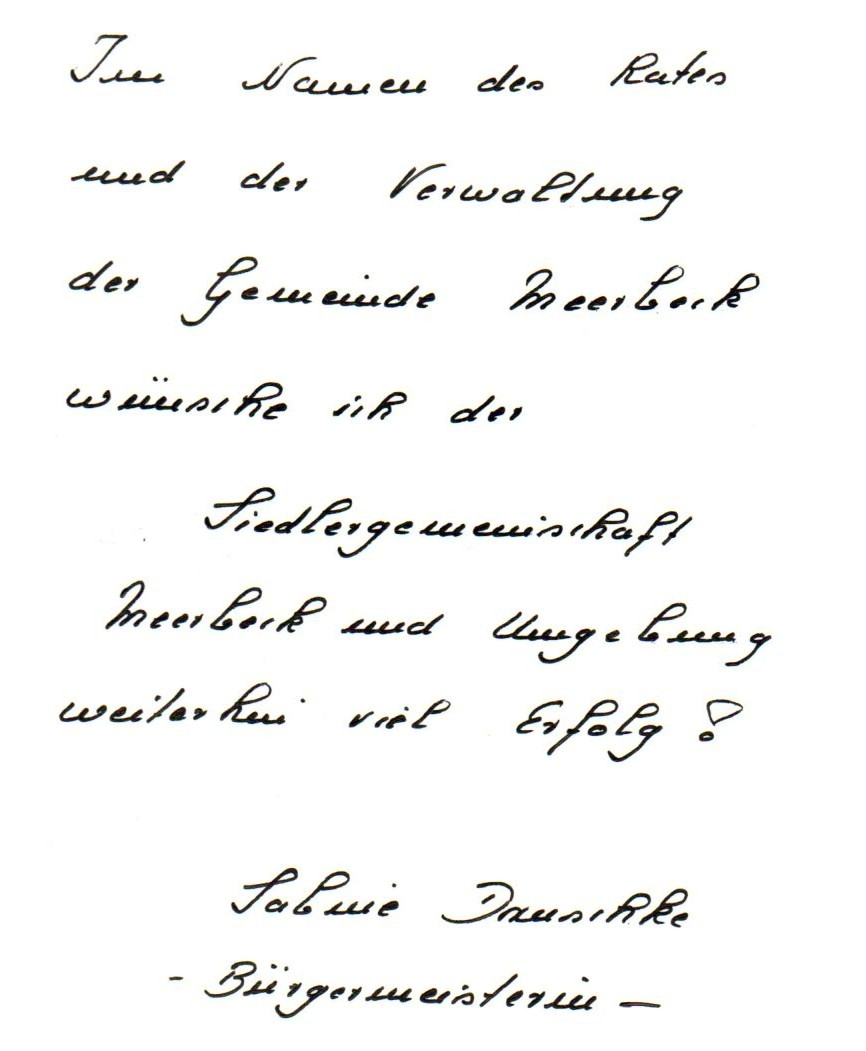 Im Namen des Rates
und der Verwaltung
der Gemeinde Meerbeck
wünsche ich der
Siedlergemeinschaft
Meerbeck und Umgebung
weiterhin viel Erfolg!
Sabine Druschke
- Bürgermeisterin -